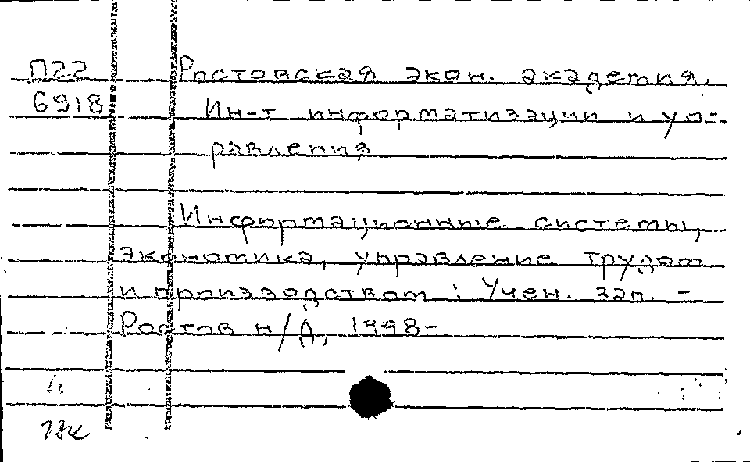 П22 Ростовская экон. академия.
6918 Ин-т информатизации и уп-
равления
Информационные системы,
экономика, управление трудом
и производством : Учен. зап. -
Ростов н/Д, 1998-